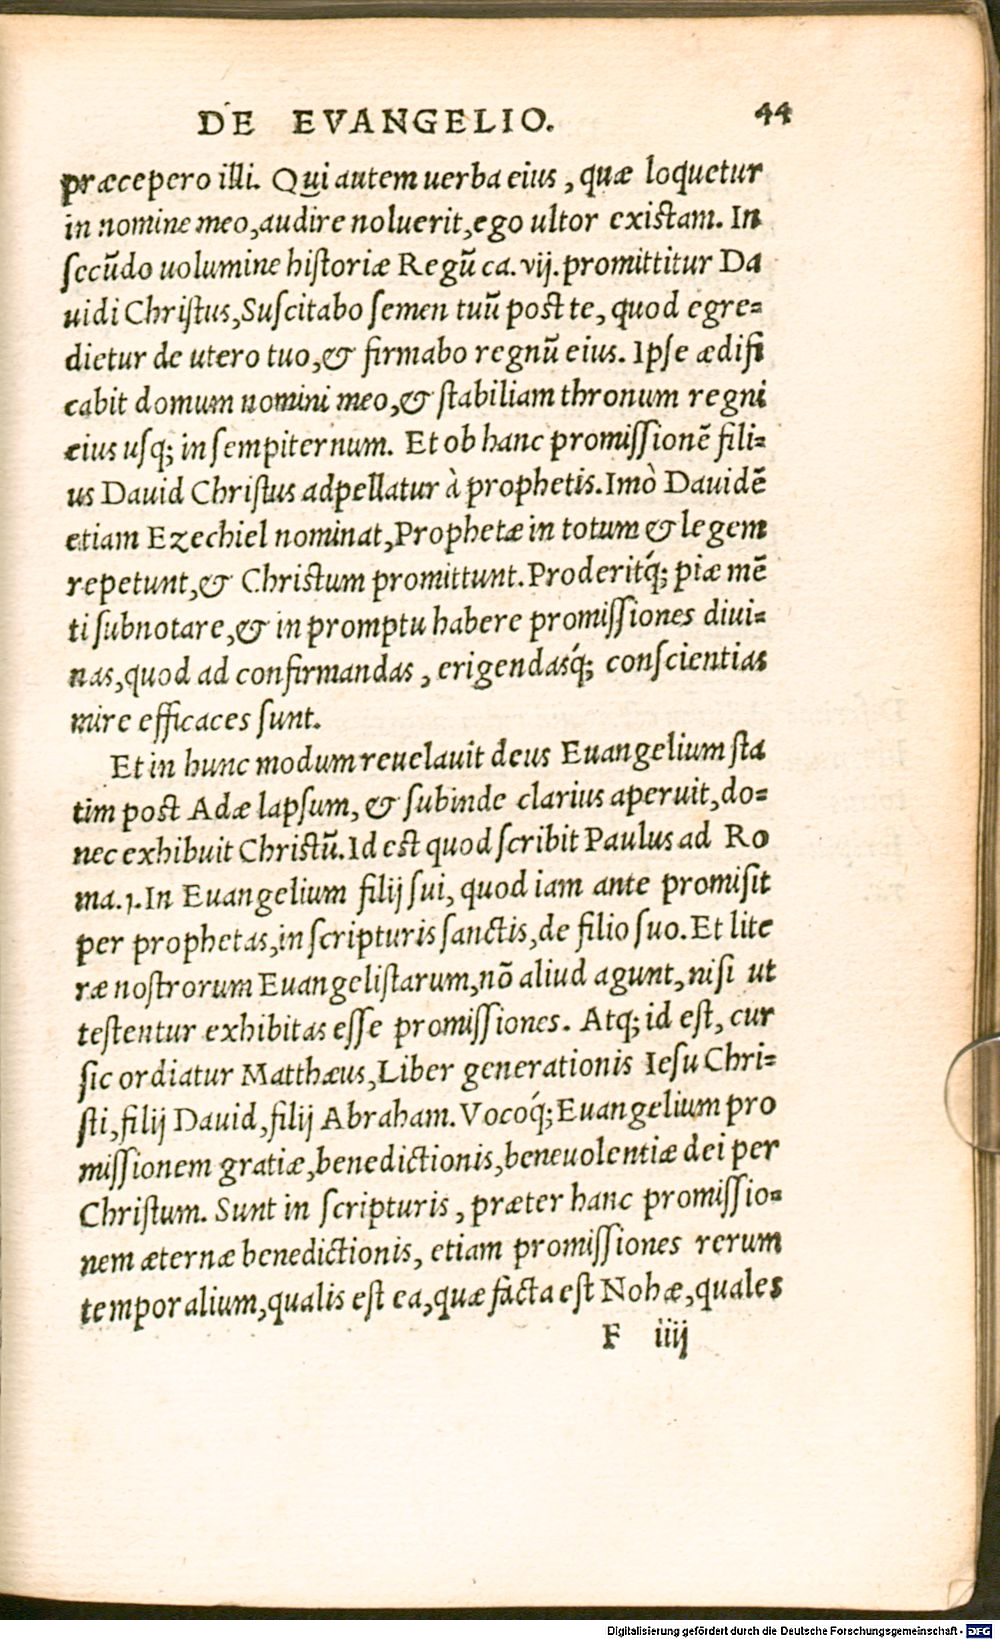 DE EVANGELIO. 44
præcepero illi. Qui autem uerba eius, quæ loquetur
in nomine meo, audire noluerit, ego ultor existam. In
secũdo uolumine historiæ Regũ ca. vij. promittitur Da
uidi Christus, Suscitabo semen tuũ post te, quod egre-
dietur de utero tuo, & firmabo regnũ eius. Ipse ædifi
cabit domum nomini meo, & stabiliam thronum regni
eius usq; in sempiternum. Et ob hanc promissionẽ fili-
us Dauid Christus adpellatur à prophetis. Imò Dauidẽ
etiam Ezechiel nominat, Prophetæ in totum & legem
repetunt, & Christum promittunt. Proderitq́; piæ mẽ
ti subnotare, & in promptu habere promissiones diui-
nas, quod ad confirmandas, erigendasq́; conscientias
mire efficaces sunt.
Et in hunc modum reuelauit deus Euangelium sta
tim post Adæ lapsum, & subinde clarius aperuit, do-
nec exhibuit Christũ. Id est quod scribit Paulus ad Ro
ma. 1. In Euangelium filij sui, quod iam ante promisit
per prophetas, in scripturis sanctis, de filio suo. Et lite
ræ nostrorum Euangelistarum, nõ aliud agunt, nisi ut
testentur exhibitas esse promissiones. Atq; id est, cur
sic ordiatur Matthæus, Liber generationis Iesu Chri-
sti, filij Dauid, filij Abraham. Vocoq́; Euangelium pro
missionem gratiæ, benedictionis, beneuolentiæ dei per
Christum. Sunt in scripturis, præter hanc promissio-
nem æternæ benedictionis, etiam promissiones rerum
temporalium, qualis est ea, quæ facta est Nohæ, quales
F iiij
Digitalisierung gefördert durch die Deutsche Forschungsgemeinschaft - DFG